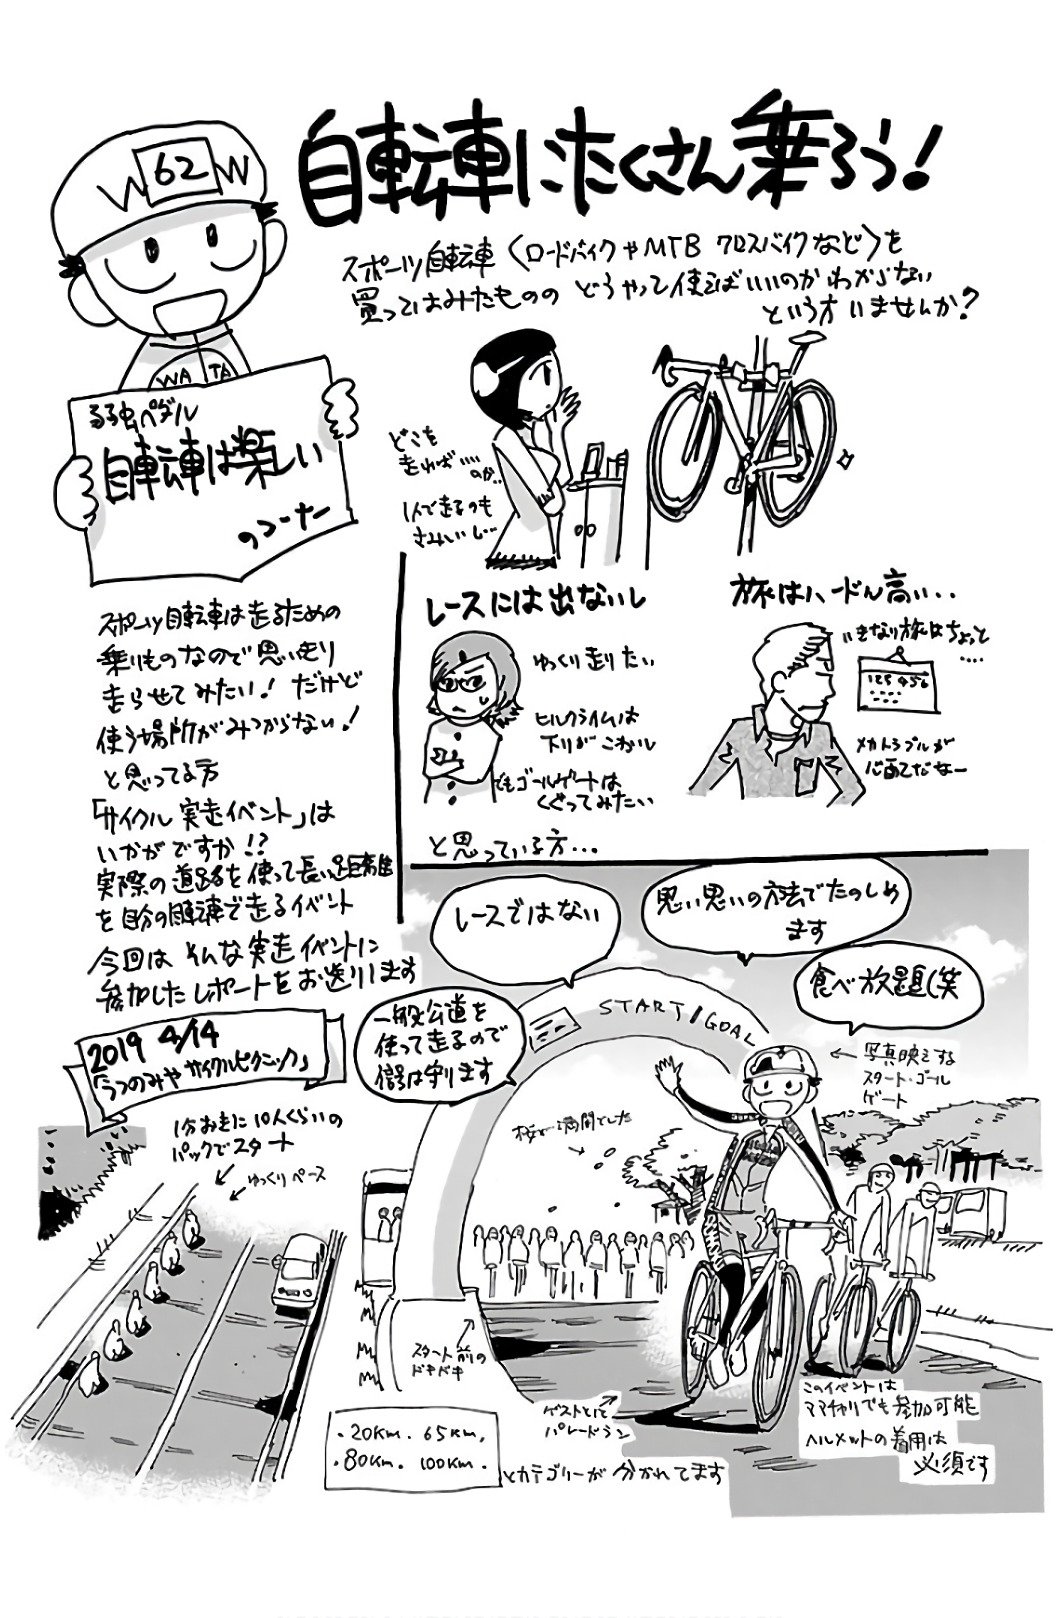 自転車にたくさん乗ろう!
62
W W
WA TA
弱虫ペダル
自転車は楽しい
のコーナー
スポーツ自転車〈ロードバイクやMTB クロスバイクなど〉を
買ってはみたものの どうやって使えばいいのかわからない
という方いませんか?
どこを
走れば....
のか..
1人で走るのも
さみしいし…
スポーツ自転車は走るための
乗りものなので思いっきり
走らせてみたい! だけど
使う場所がみつからない!
と思ってる方
「サイクル実走イベント」は
いかがですか!?
実際の道路を使って長い距離
を自分の自転車で走るイベント
今回は そんな実走イベントに
参加したレポートをお送りします
レースには出ないし
ゆっくり走りたい
ヒルクライムは
下りがこわいし
でもゴールゲートは
くぐってみたい
と思っている方…
旅はハードル高い..
いきなり旅はちょっと
.....
123456
メカトラブルが
心配だなー
レースではない
思い思いの方法でたのしめ
ます
食べ放題(笑
一般公道を
使って走るので
信号は守ります
START/GOAL
←写真映えする
スタート・ゴール
ゲート
2019 4/14
「うつのみやサイクルピクニック」
1分おきに10人くらいの
パックでスタート
ゆっくりペース
桜が満開でした
スタート前の
ドキドキ
ゲストとして
パレードラン
このイベントは
ママチャリでも参加可能
ヘルメットの着用は
必須です
・20Km.・65Km.
・80Km.・100Km.
とカテゴリーが分かれてます